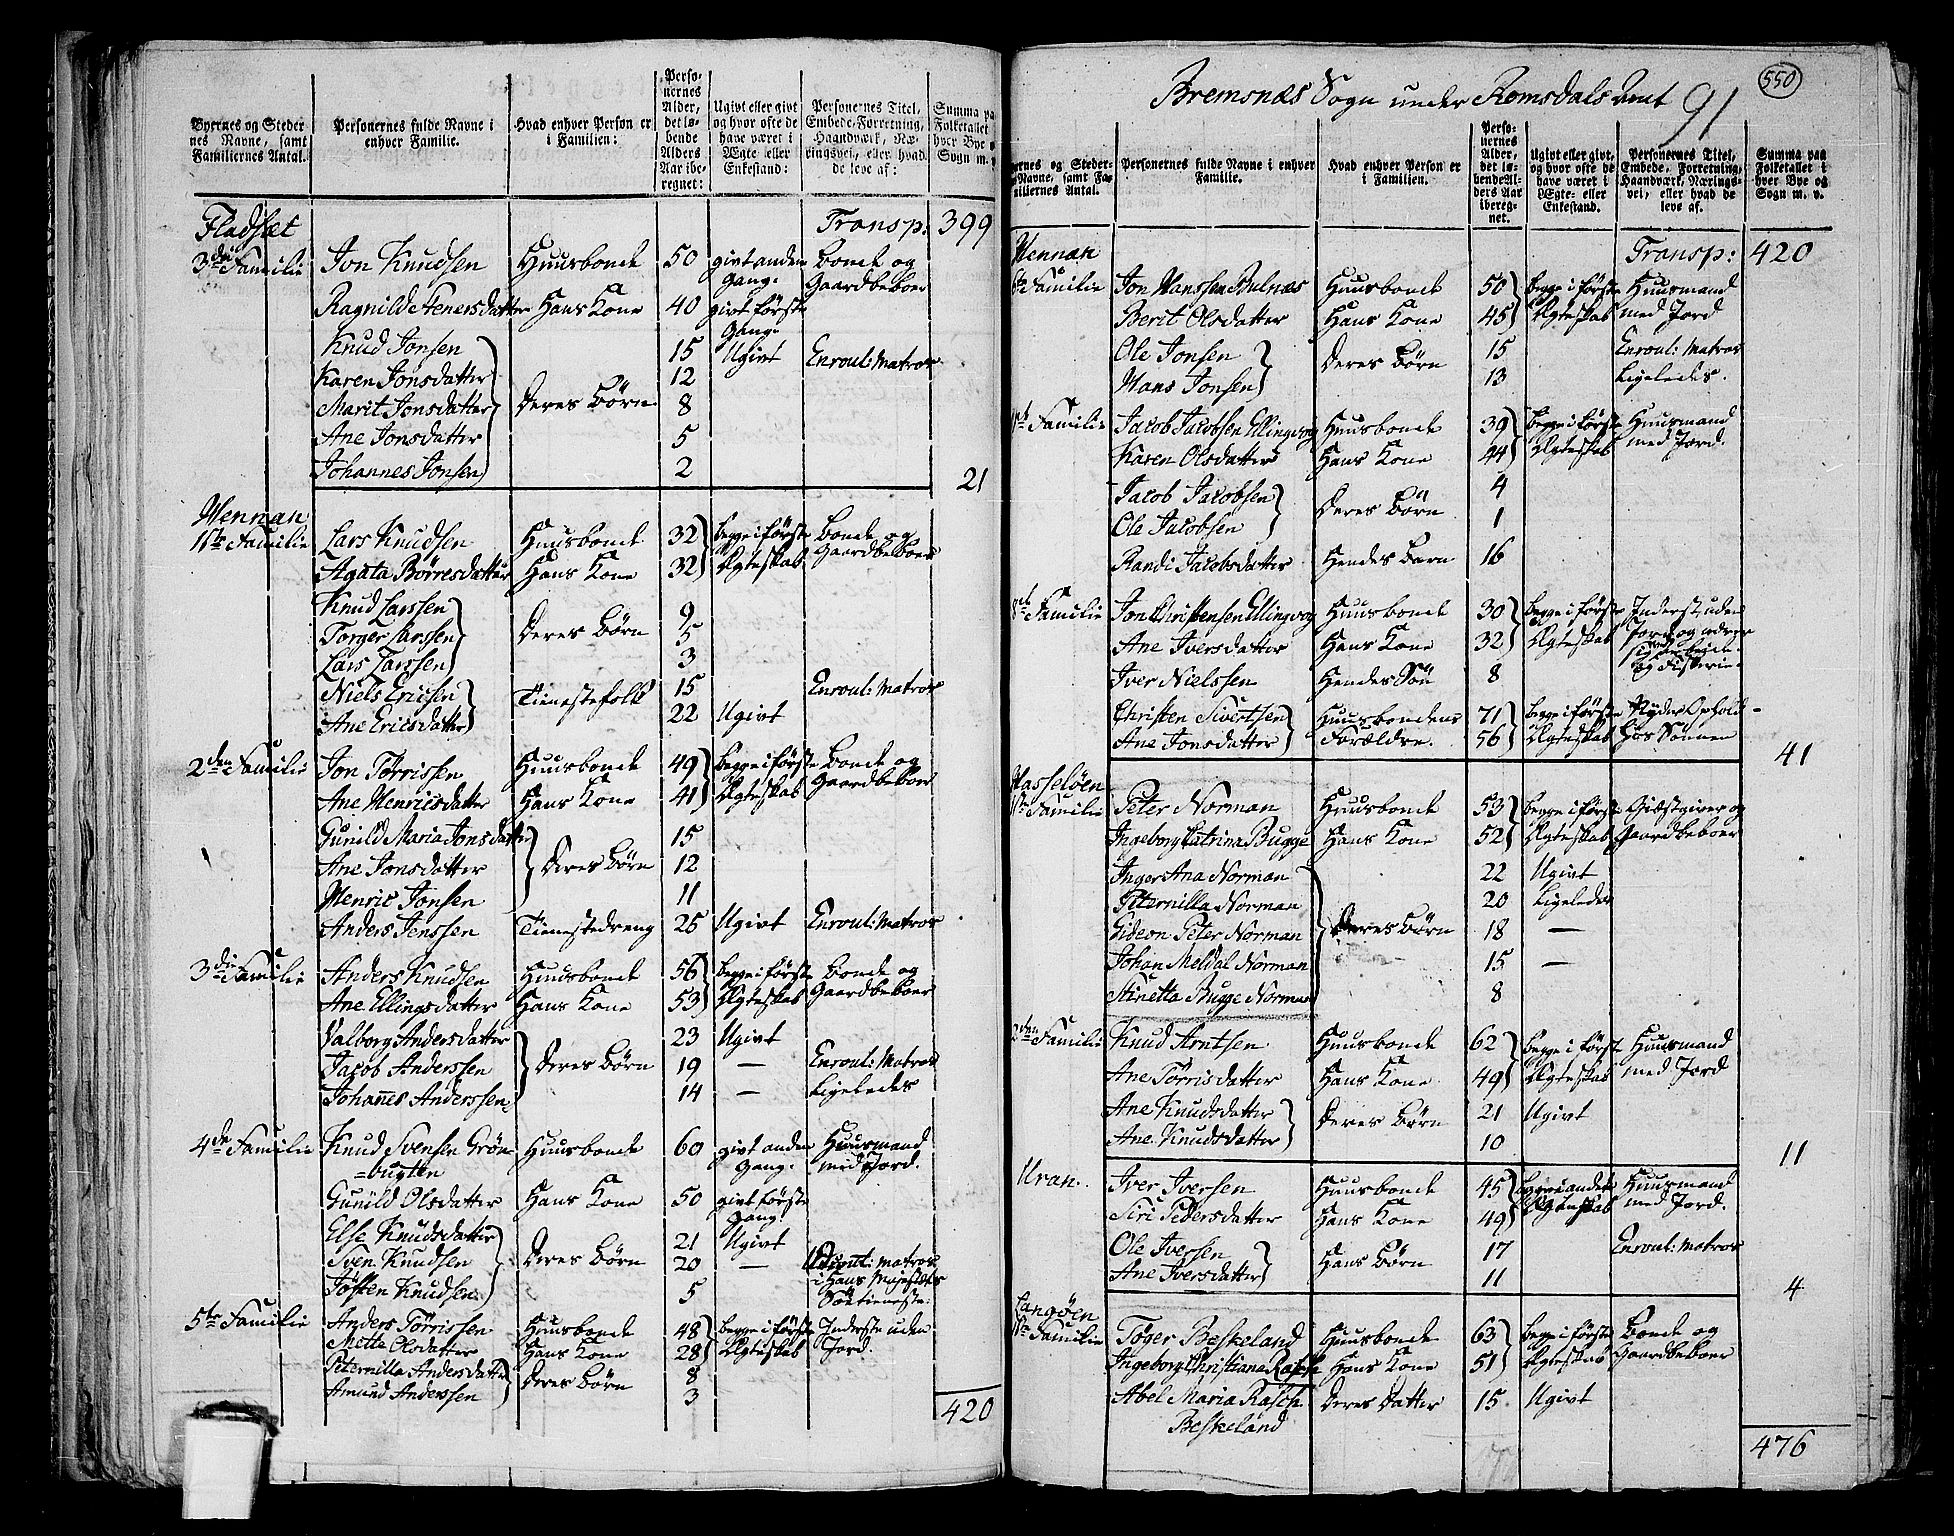 Byernes og Steder
nes Navne, samt
Familiernes Antal.
Personernes fulde Navne i
enhver Familie.
Hvad enhver Person er
i Familien:
Perso-
nernes
Alder,
det lø-
bende
Alders
Aar ibe-
regnet:
Ugivt eller givt
og hvor ofte de
have været i
Ægte eller
Enkestand:
Personernes Titel,
Embede, Forretning,
Haandværk, Næ-
ringsvei, eller hvad
de leve af:
Summa paa
Folketallet
hver Bye
Sogn m.
Fladsæt Transp: 399
3die Familie Jon Knudsen Huusbonde 50 givt anden Bonde og
Gang. Gaardbeboer
Ragnild Stenersdatter Hans Kone 40 givt første
Gang.
Knud Jonsen 15 Ugivt Enroul: Matros
Karen Jonsdatter 12
Marit Jonsdatter Deres Börn 8
Ane Jonsdatter 5
Johannes Jonsen 2
21
Hennan
1ste Familie Lars Knudsen Huusbonde 32 begge i første Bonde og
Agata Börresdatter Hans Kone 32 Ægteskab Gaardbeboer
Knud Larssen 9
Torger Larssen Deres Börn 5
Lars Larssen 3
Niels Ericsen Tienestefolk 15 Enroul: Matros
Ane Ericsdatter 22 Ugivt
2den Familie Jon Törrissen Huusbonde 49 begge i første Bonde og
Ane Henricsdatter Hans Kone 41 Ægteskab Gaardbeboer
Gunild Maria Jonsdatter 15
Ane Jonsdatter Deres Börn 12
Henric Jonsen 11
Anders Jenssen Tienestedreng 25 Ugivt Enroul: Matros
3die Familie Anders Knudsen Huusbonde 56 begge i første Bonde og
Ane Ellingsdatter Hans Kone 53 Ægteskab Gaardbeboer
Valborg Andersdatter 23 Ugivt
Jacob Anderssen Deres Börn 19 — Enroul: Matros
Johannes Anderssen 14 — Ligeledes
4de Familie Knud Svensen Grön- Huusbonde 60 givt anden Huusmand
=bugten Gang. med Jord.
Gunild Olsdatter Hans Kone 50 givt første
Gang.
Else Knudsdatter 21 Ugivt
Sven Knudsen Deres Börn 20 — Matros
Jösten Knudsen 5 i Hans Majestets
Söetieneste.
5te Familie Anders Törrissen Huusbonde 48 begge i første Inderste uden
Mette Olsdatter Hans Kone 28 Ægteskab Jord.
Peternilla Andersdatter Deres Börn 8
Amund Anderssen 3
420
Bremsnæs Sogn under Romsdals Amt 91
550
ernes og Steder-
Navne, samt Fa-
miliernes Antal.
Personernes fulde Navne i enhver
Familie.
Hvad enhver Person er
i Familien.
Perso-
nernes
Alder,
det lø-
bende Al-
ders Aar
iberegnet.
Ugivt eller givt,
og hvor ofte de
have været i
Ægte- eller
Enkestand.
Personernes Titel,
Embede, Forretning,
Haandværk, Nærings-
vei, eller hvad de
leve af.
Summa paa
Folketallet i
hver Bye og
Sogn m. v.
Hennan Transp: 420
6te Familie Jon Hanssen Bulnæs Huusbonde 50 begge i første Huusmand
Berit Olsdatter Hans Kone 45 Ægteskab med Jord
Ole Jonsen Deres Börn 15 Enroul: Matros
Hans Jonsen 13 Ligeledes.
Familie Jacob Jacobsen Ellingvog Huusbonde 39 begge i første Huusmand
Karen Olsdatter Hans Kone 44 Ægteskab med Jord.
Jacob Jacobsen Deres Börn 4
Ole Jacobsen 1
Randi Jacobsdatter Hendes Barn 16
Familie Jon Christensen Ellingvog Huusbonde 30 begge i første Inderst uden
Ane Iversdatter Hans Kone 32 Ægteskab Jord og nærer
sig
Iver Nielssen Hendes Sön 8 og Fiskerie.
Christen Sivertsen Huusbondens 71 begge i første Nyder Ophold
Ane Jonsdatter Forældre. 56 Ægteskab hos Sönnen
41
Hasselöen
1ste Familie Peter Norman Huusbonde 53 begge i første Giæstgiver og
Ingeborg Catrina Bugge Hans Kone 52 Ægteskab Gaardbeboer
Inger Ana Norman 22 Ugivt
Peternilla Norman 20 Ligeledes
Gideon Peter Norman Deres Börn 18 —
Johan Meldal Norman 15 —
Stinetta Bugge Norman 8
2den Familie Knud Arntsen Huusbonde 62 begge i første Huusmand
Ane Törrisdatter Hans Kone 49 Ægteskab med Jord
Ane Knudsdatter Deres Börn 21 Ugivt
Ane Knudsdatter 10
11
Uran. Iver Iversen Huusbonde 45 begge i andet Huusmand
Siri Pedersdatter Hans Kone 49 Ægteskab med Jord.
Ole Iversen Hans Börn 17 Enroul: Matros
Ane Iversdatter 11
4
Langöen
1ste Familie Töger Beskeland Huusbonde 63 begge i første Bonde og
Ingeborg Christiane Rasch Hans Kone 51 Ægteskab Gaardbeboer
Abel Maria Rasch Deres Datter 15 Ugivt
Beskeland
476